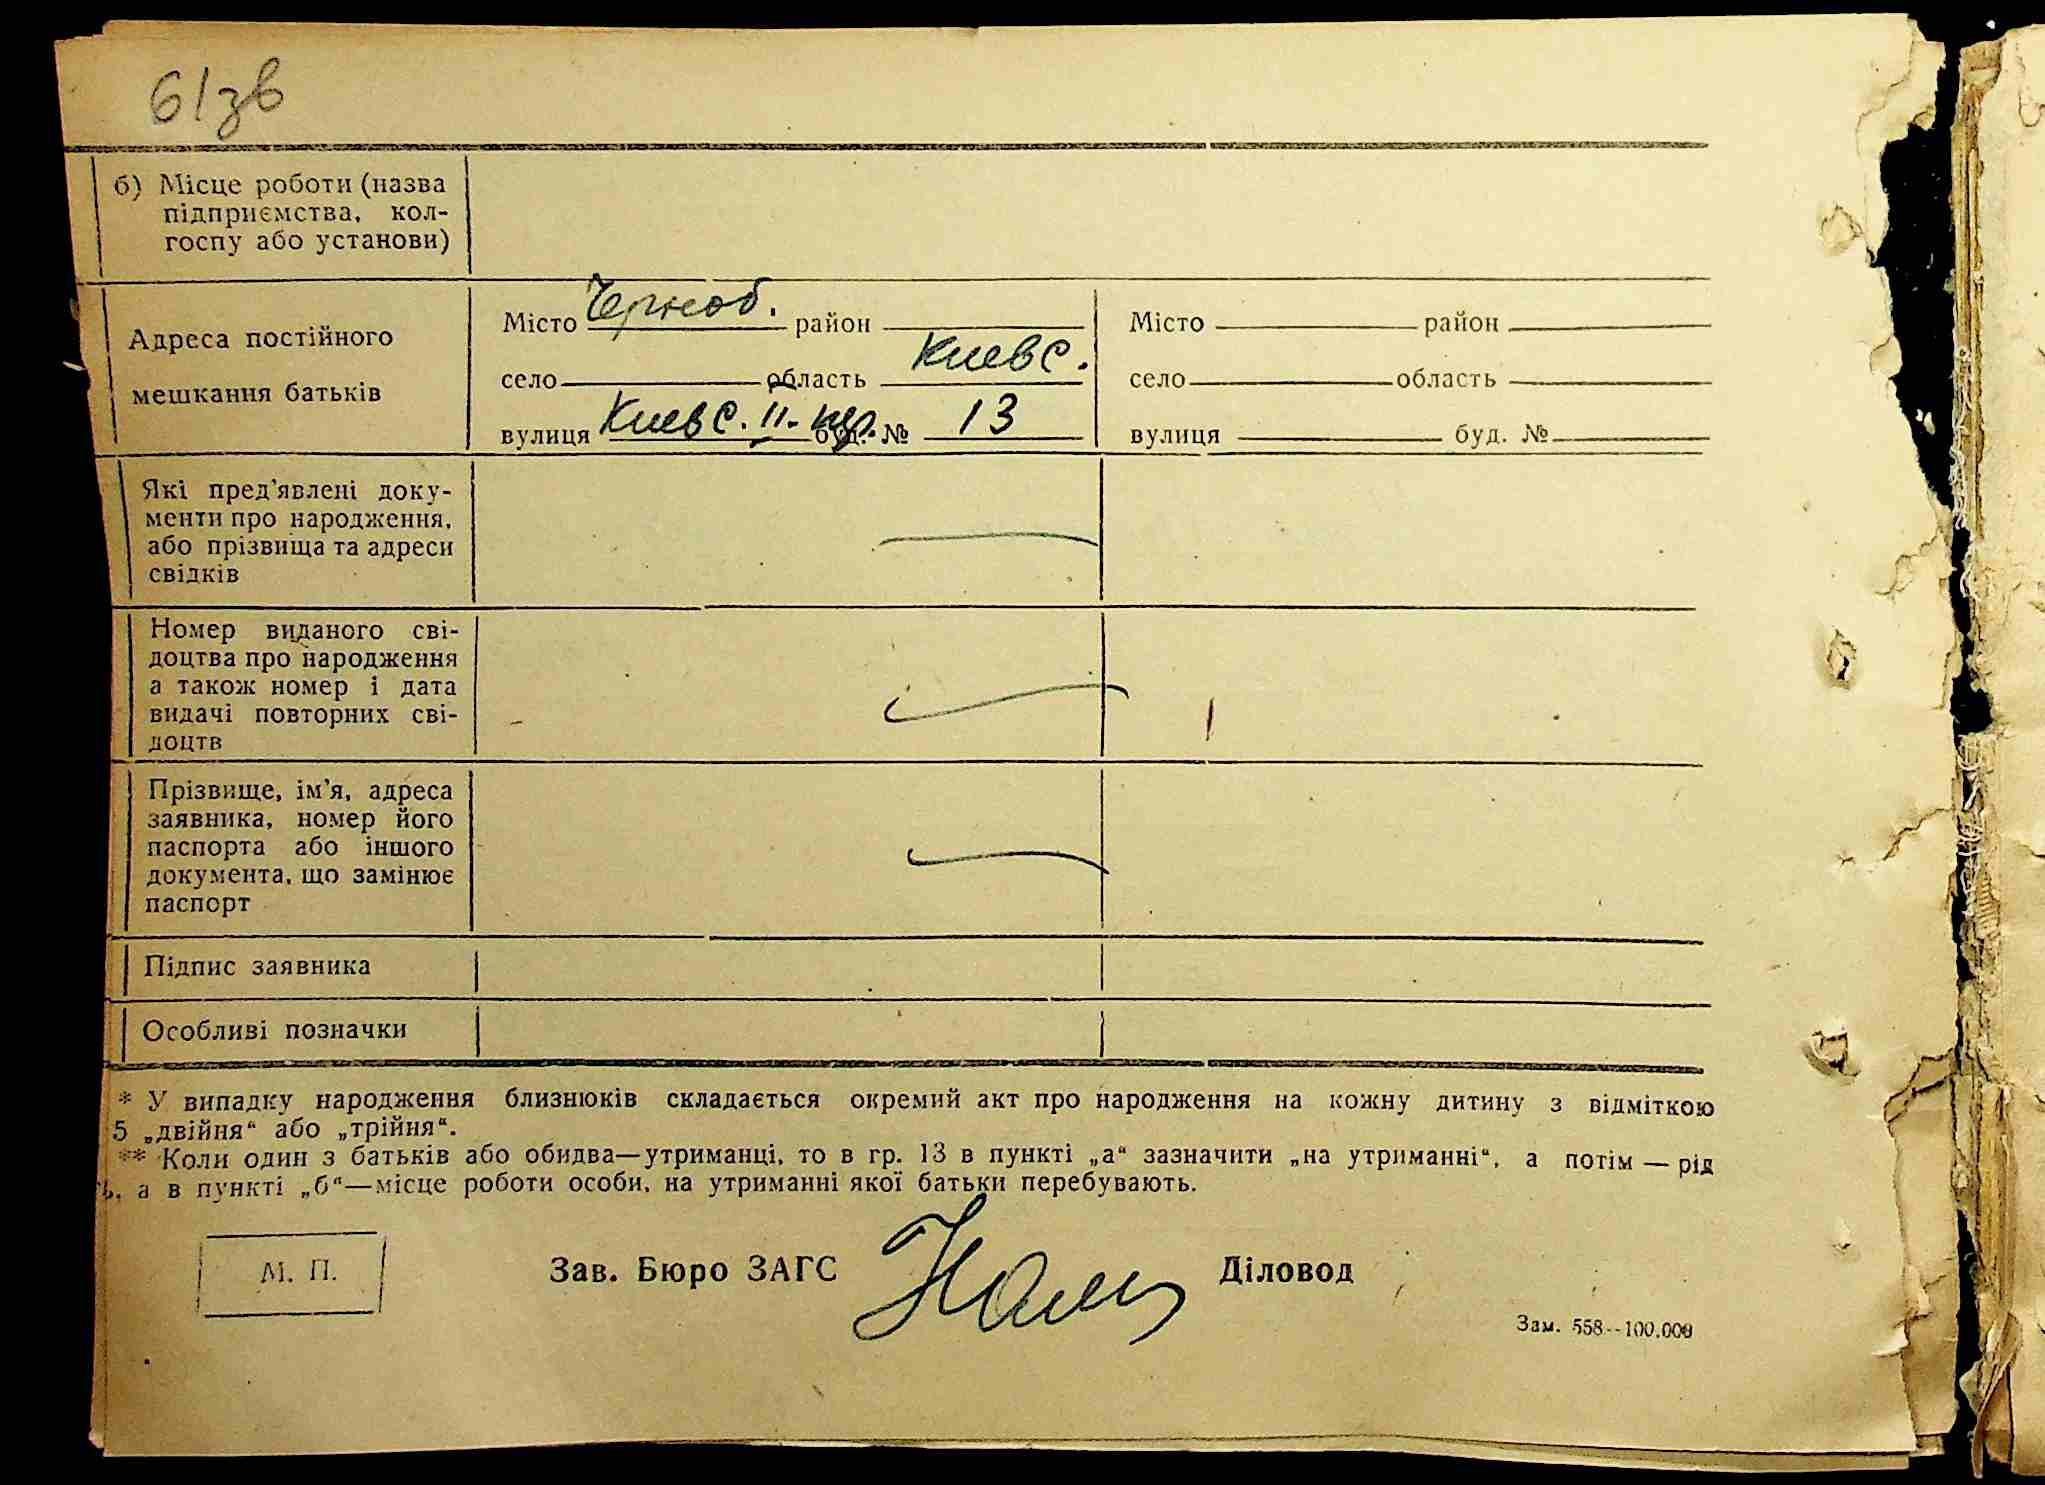 61зв
б) Місце роботи (назва
підприємства, кол-
госпу або установи)
Адреса постійного
мешкання батьків
Місто Черноб. район
село область Киевс.
вулиця Киевс. II-пер. буд. № 13
Місто район
село область
вулиця буд. №
Які пред'явлені доку-
менти про народження,
або прізвища та адреси
свідків
Номер виданого сві-
доцтва про народження
а також номер і дата
видачі повторних сві-
доцтв
Прізвище, ім'я, адреса
заявника, номер його
паспорта або іншого
документа, що замінює
паспорт
Підпис заявника
Особливі позначки
* У випадку народження близнюків складається окремий акт про народження на кожну дитину з відміткою
5 „двійня“ або „трійня“.
** Коли один з батьків або обидва—утриманці, то в гр. 13 в пункті „а“ зазначити „на утриманні“, а потім — рід
ь, а в пункті „б“—місце роботи особи, на утриманні якої батьки перебувають.
М. П.
Зав. Бюро ЗАГС
Діловод
Зам. 558--100.000